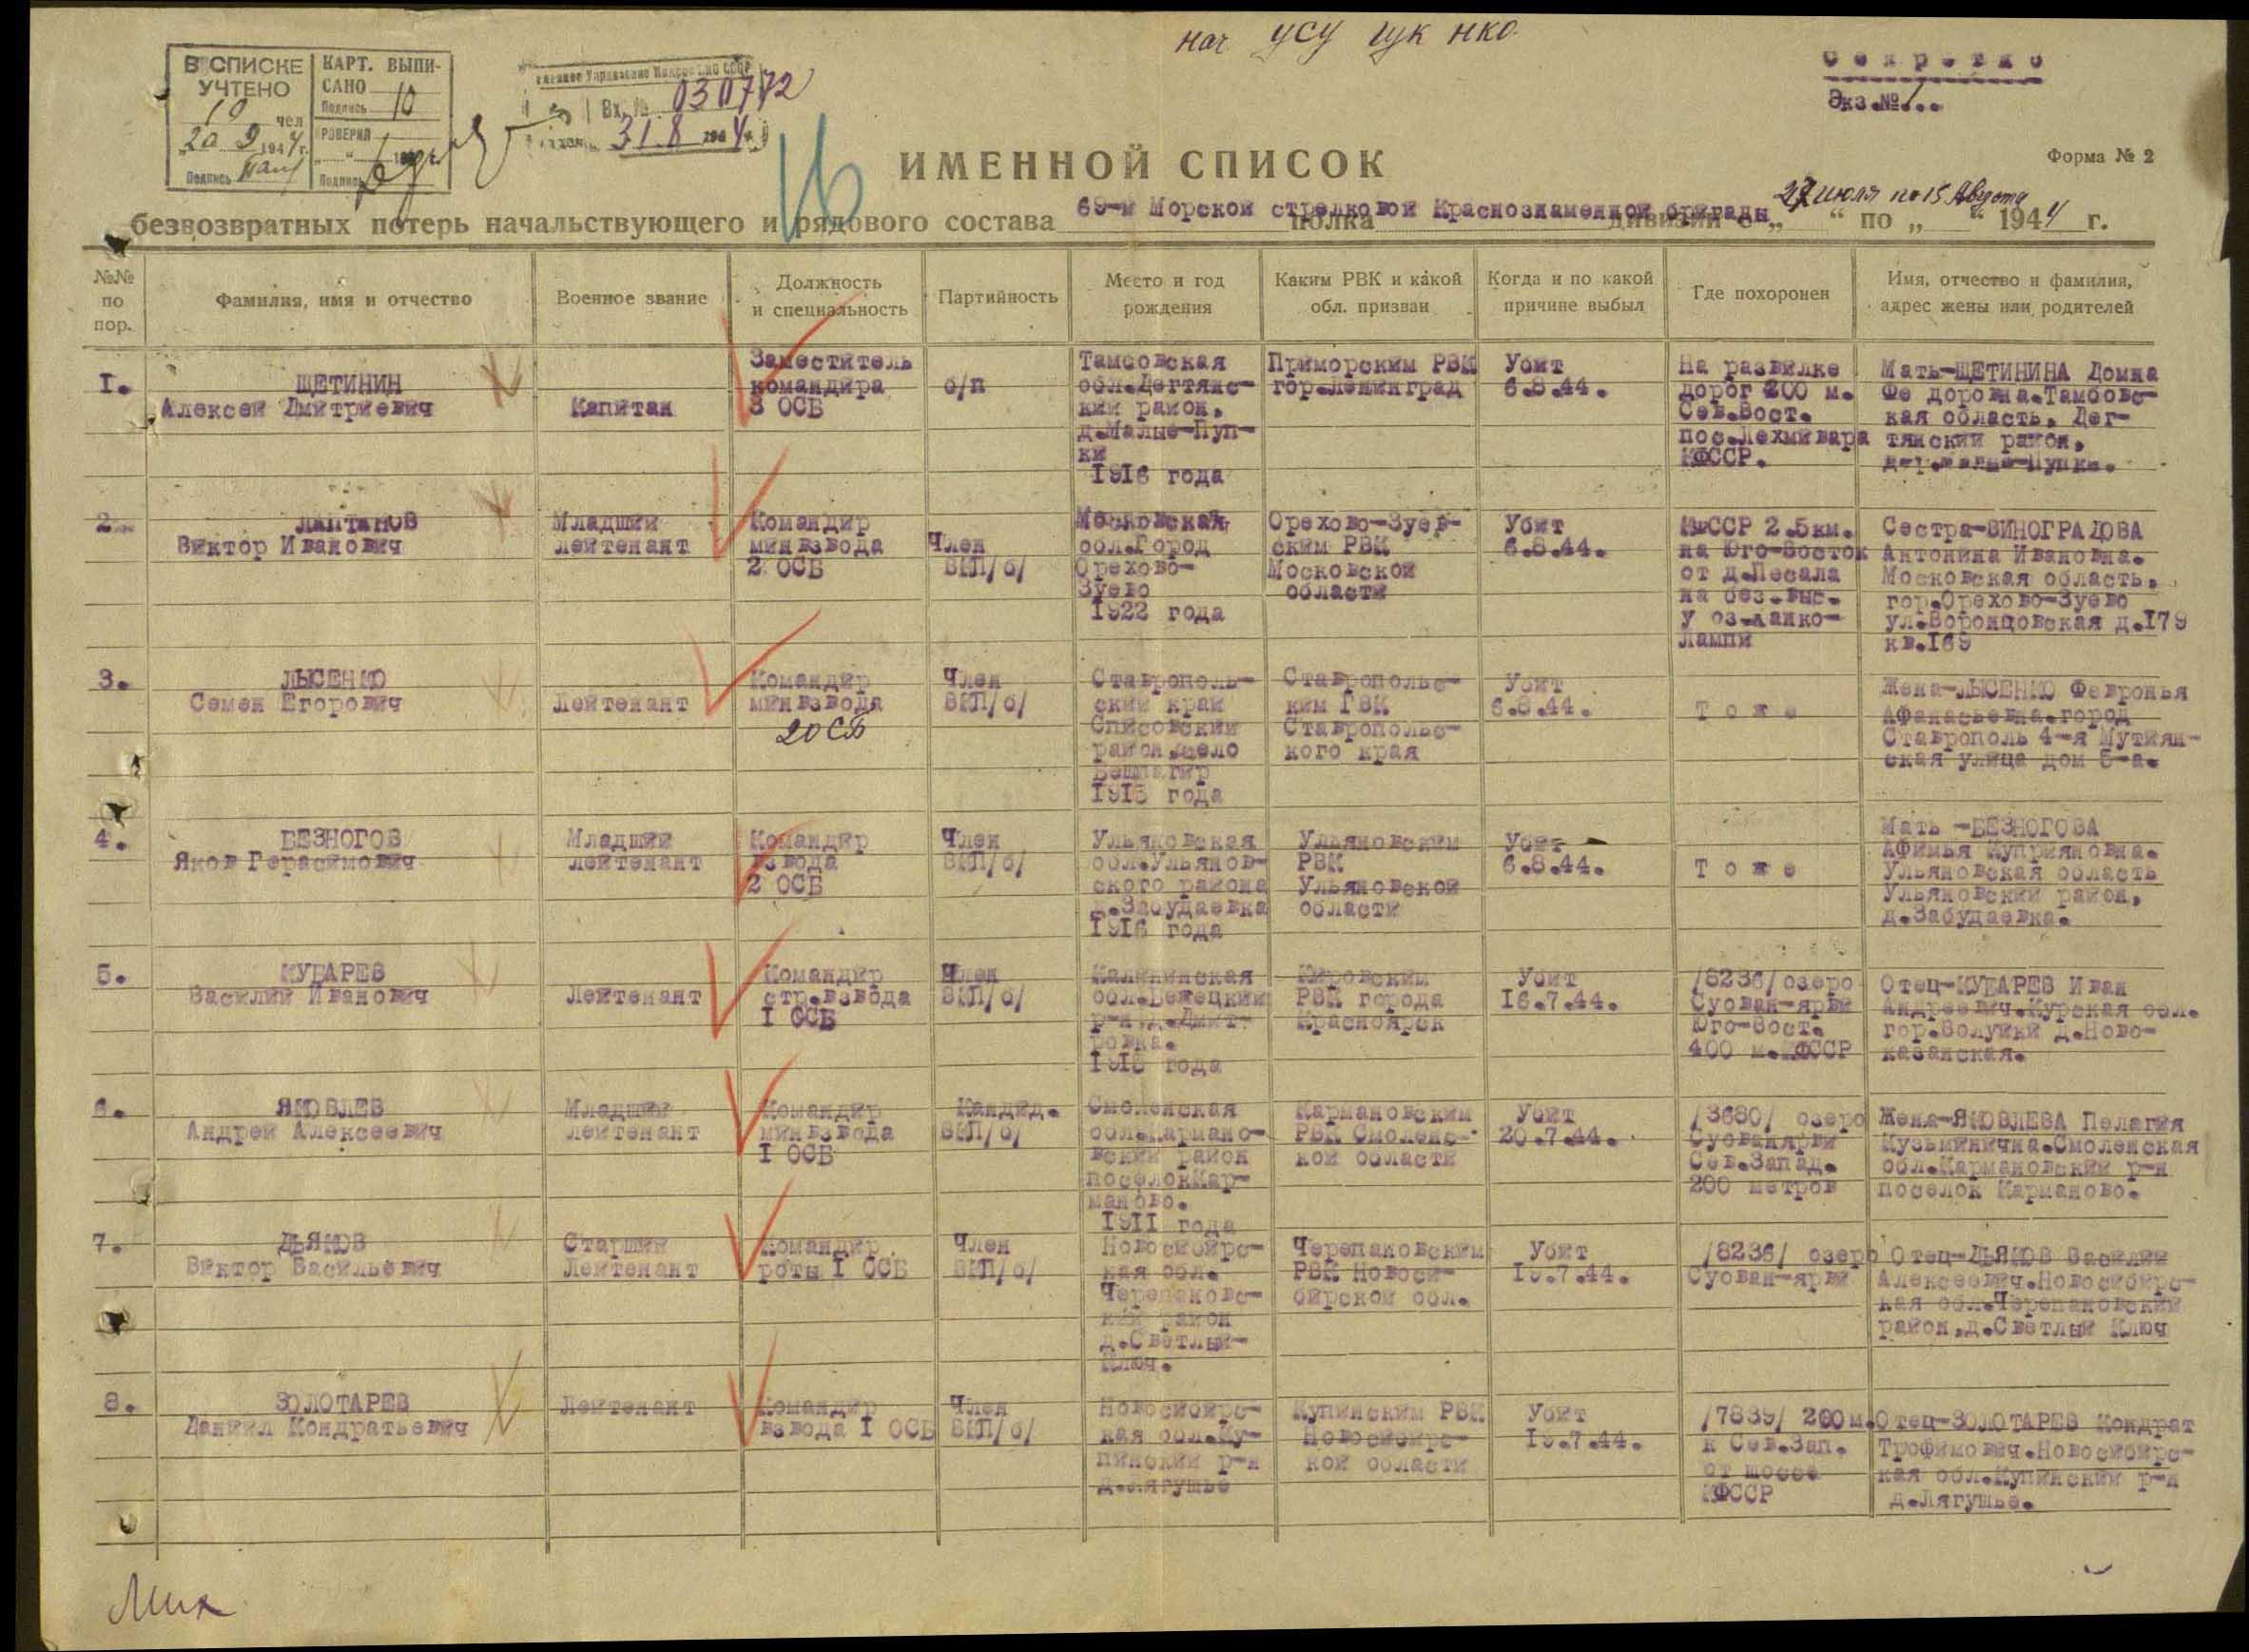 нач УСУ ГУК НКО
Секретно
Экз.№1..
В СПИСКЕ
УЧТЕНО
10 чел
"20" 9 1944 г.
Подпись
КАРТ. ВЫПИ-
САНО
Подпись 10
ПРОВЕРИЛ
Подпись
Вх. № 030772
31.8 1944 г.
ИМЕННОЙ СПИСОК
Форма № 2
безвозвратных потерь начальствующего и рядового состава 69-й Морской стрелковой Краснознаменной бригады полка дивизии с „ 27 июля по 15 Августа “ по „ “ 1944 г.
№№ по пор.
Фамилия, имя и отчество
Военное звание
Должность и специальность
Партийность
Место и год рождения
Каким РВК и какой обл. призван
Когда и по какой причине выбыл
Где похоронен
Имя, отчество и фамилия, адрес жены или родителей
1.
ЩЕТИНИН
Алексей Дмитриевич
Капитан
Заместитель
командира
3 ОСБ
б/п
Тамбовская
обл.Дегтянс-
кий район,
д.Малые-Пуп-
ки
1916 года
Приморским РВК
гор.Ленинград
Убит
6.8.44.
На развилке
дорог 200 м.
Сев.Вост.
пос.Лехмивара
КФССР.
Мать-ЩЕТИНИНА Домна
Федоровна.Тамбовс-
кая область, Дег-
тянский район,
дер.Малые-Пупки.
2.
ЛАПТАНОВ
Виктор Иванович
Младший
лейтенант
Командир
минвзвода
2 ОСБ
Член
ВКП/б/
Московская
обл.Город
Орехово-
Зуево
1922 года
Орехово-Зуев-
ским РВК
Московской
области
Убит
6.8.44.
КФССР 2.5км.
на Юго-Восток
от д.Лесала
на без.выс.
у оз.Ланко-
лампи
Сестра-ВИНОГРАДОВА
Антонина Ивановна.
Московская область,
гор.Орехово-Зуево
ул.Воронцовская д.179
кв.169
3.
ЛЫСЕНКО
Семен Егорович
Лейтенант
Командир
минвзвода
2 ОСБ
Член
ВКП/б/
Ставрополь-
ский край
Списовский
район село
Бешпагир
1915 года
Ставропольс-
ким ГВК
Ставропольс-
кого края
Убит
6.8.44.
Т о ж е
Жена-ЛЫСЕНКО Февронья
Афанасьевна.город
Ставрополь 4-я Мутнян-
ская улица дом 5-а.
4.
БЕЗНОГОВ
Яков Герасимович
Младший
лейтенант
Командир
взвода
2 ОСБ
Член
ВКП/б/
Ульяновская
обл.Ульянов-
ского района
д.Забудаевка
1916 года
Ульяновским
РВК
Ульяновской
области
Убит
6.8.44.
Т о ж е
Мать -БЕЗНОГОВА
Афимья Куприяновна.
Ульяновская область
Ульяновский район,
д.Забудаевка.
5.
КУБАРЕВ
Василий Иванович
Лейтенант
Командир
стр.взвода
1 ОСБ
Член
ВКП/б/
Калининская
обл.Бежецкий
р-н, д.Дмит-
ровка.
1918 года
Кировским
РВК города
Красноярск
Убит
16.7.44.
/8236/ озеро
Суован-ярви
Юго-Вост.
400 м.КФССР
Отец-КУБАРЕВ Иван
Андреевич.Курская обл.
гор.Волуйки д.Ново-
казанская.
6.
ЯКОВЛЕВ
Андрей Алексеевич
Младший
лейтенант
Командир
минвзвода
1 ОСБ
Кандид.
ВКП/б/
Смоленская
обл.Кармано-
вский район
поселокКар-
маново.
1911 года
Кармановским
РВК Смоленс-
кой области
Убит
20.7.44.
/3680/ озеро
Суованярви
Сев.Запад.
200 метров
Жена-ЯКОВЛЕВА Пелагия
Кузьминична.Смоленская
обл.Кармановский р-н
поселок Карманово.
7.
ДЬЯКОВ
Виктор Васильевич
Старший
Лейтенант
Командир
роты 1 ОСБ
Член
ВКП/б/
Новосибирс-
кая обл.
Черепановс-
кий район
д.Светлый-
Ключ.
Черепановским
РВК Новоси-
бирской обл.
Убит
19.7.44.
/8236/ озеро
Суован-ярви
Отец-ДЬЯКОВ Василий
Алексеевич.Новосибирс-
кая обл.Черепановский
район,д.Светлый Ключ
8.
ЗОЛОТАРЕВ
Даниил Кондратьевич
Лейтенант
Командир
взвода 1 ОСБ
Член
ВКП/б/
Новосибирс-
кая обл.Ку-
пинский р-н
д.Лягушье
Купинским РВК
Новосибирс-
кой области
Убит
19.7.44.
/7839/ 200м.
к Сев.Зап.
от шоссе
КФССР
Отец-ЗОЛОТАРЕВ Кондрат
Трофимович.Новосибирс-
кая обл.Купинский р-н
д.Лягушье.